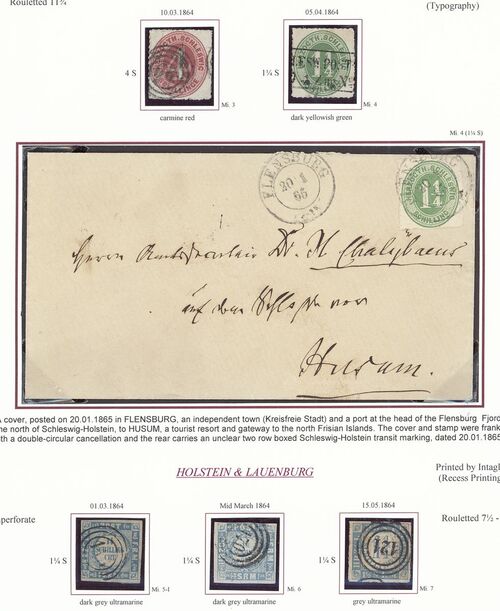 Rouletted 11¾
(Typography)
10.03.1864
05.04.1864
4 S
1¼ S
Mi. 3
Mi. 4
carmine red
dark yellowish green
Mi. 4 (1¼ S)
FLENSBURG
20 1
65
HERZOGTH. SCHLESWIG
1¼
SCHILLING
Herrn Amtssecretair Dr. H Chalybaeus
auf dem Schloße vor
Husum.
A cover, posted on 20.01.1865 in FLENSBURG, an independent town (Kreisfreie Stadt) and a port at the head of the Flensburg Fjord
the north of Schleswig-Holstein, to HUSUM, a tourist resort and gateway to the north Frisian Islands. The cover and stamp were frank
with a double-circular cancellation and the rear carries an unclear two row boxed Schleswig-Holstein transit marking, dated 20.01.1865
HOLSTEIN & LAUENBURG
Printed by Intagl
(Recess Printing
01.03.1864
Mid March 1864
15.05.1864
mperforate
Rouletted 7½ -
1¼ S
1¼ S
1¼ S
121
Mi. 5-I
Mi. 6
Mi. 7
dark grey ultramarine
dark grey ultramarine
grey ultramarine